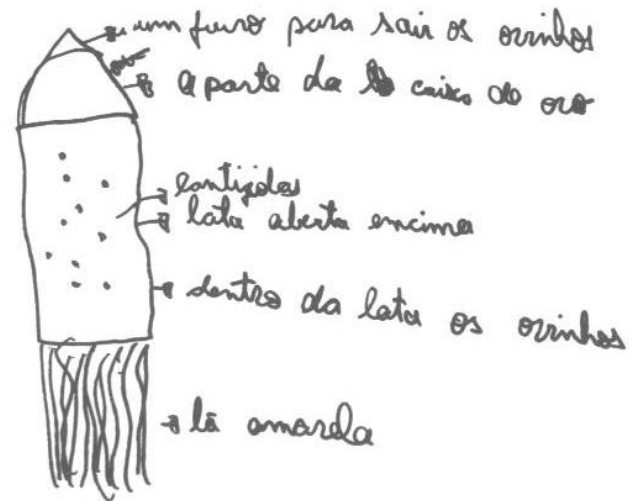 um furo para sair os ovinhos
a parte da caixa de ovo
lantijolas
lata aberta encima
dentro da lata os ovinhos
lã amarela